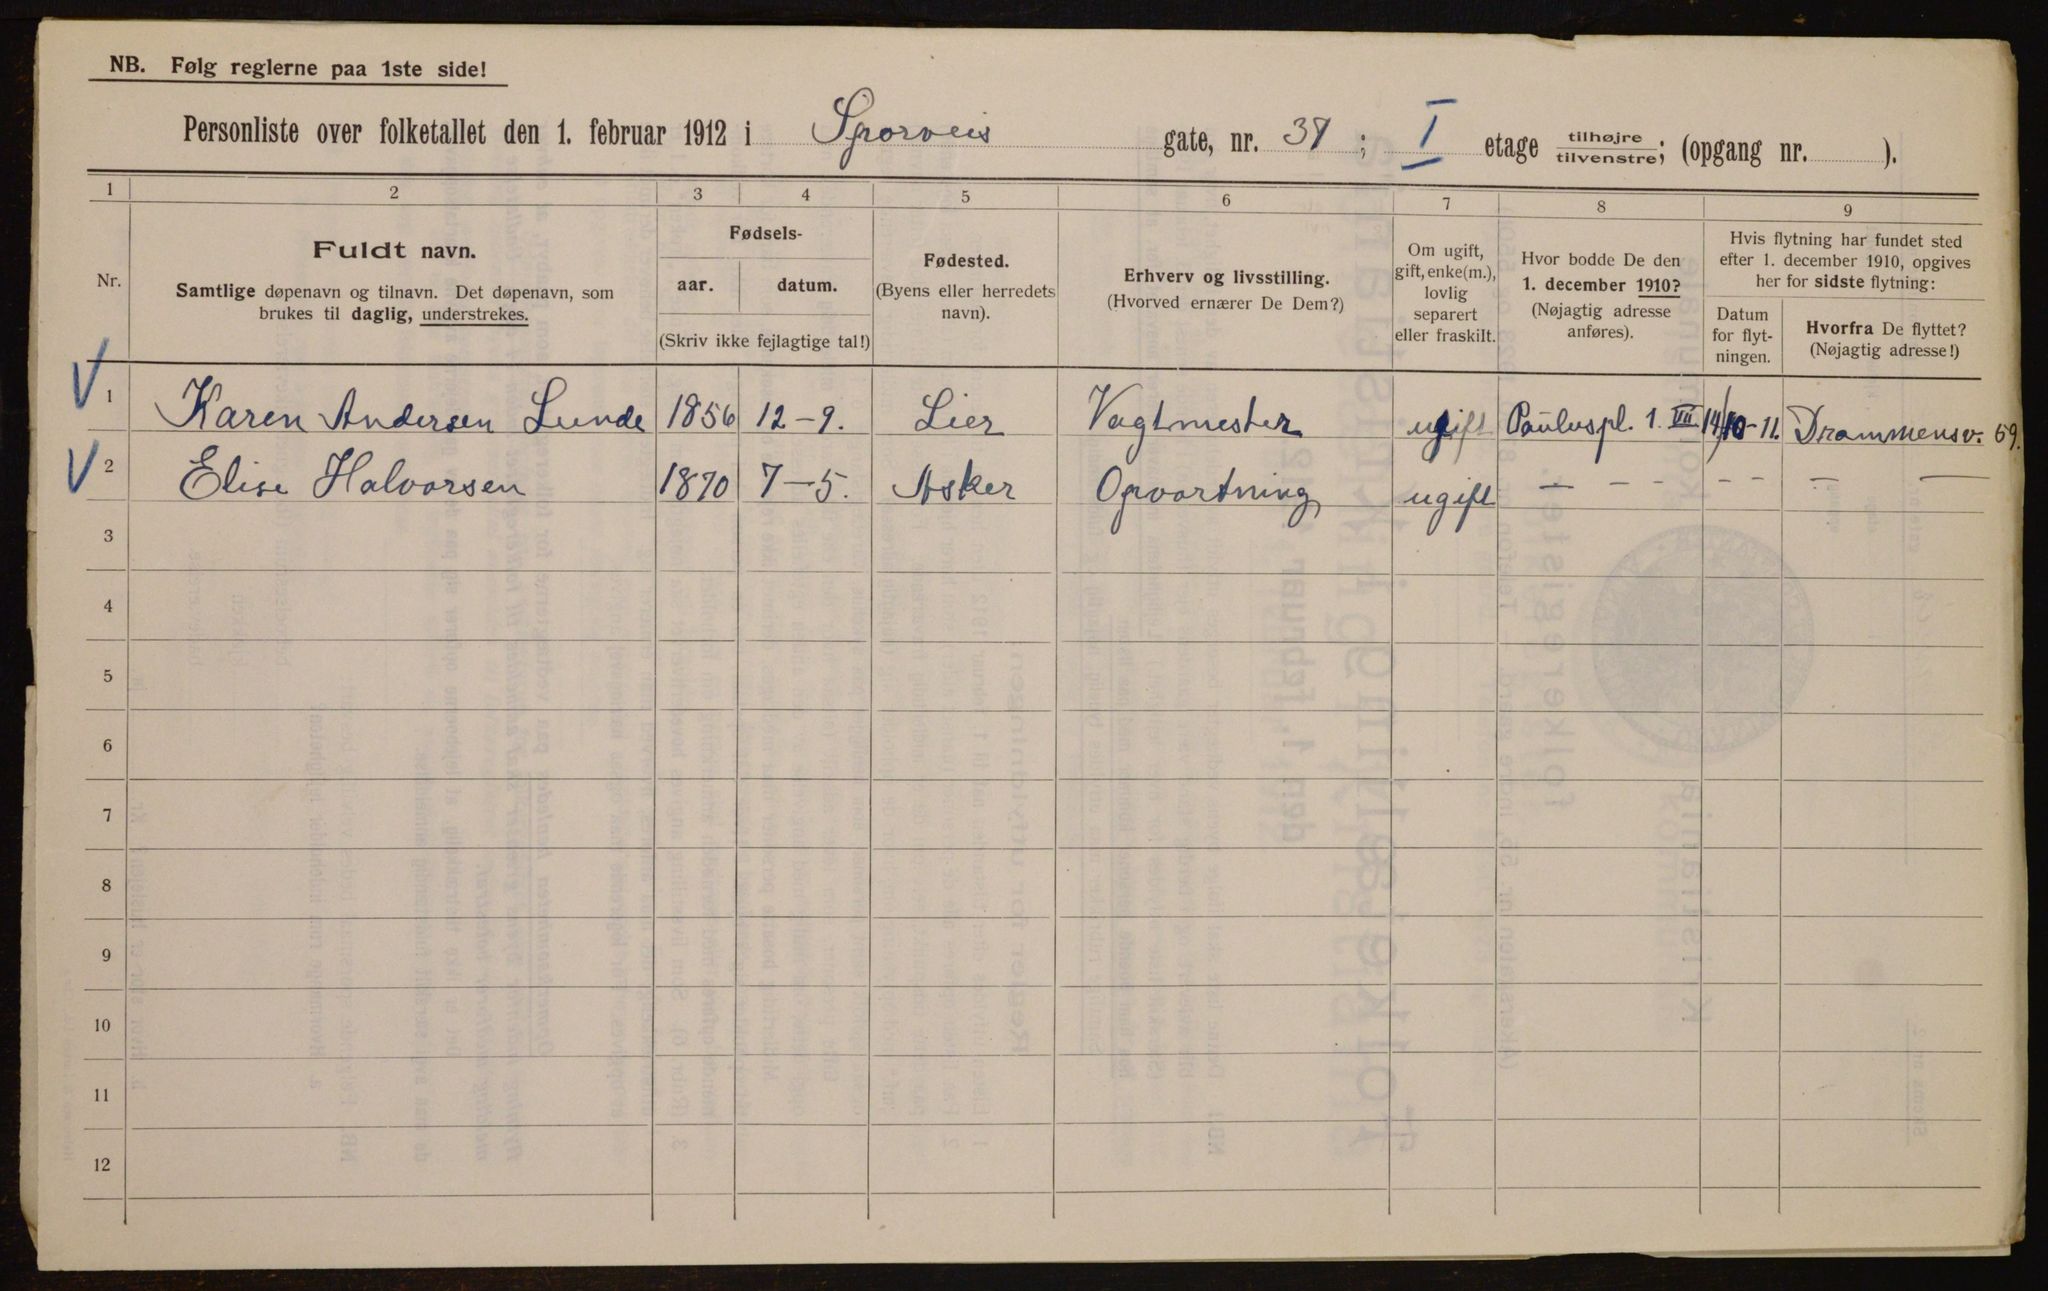 NB. Følg reglerne paa 1ste side!
Personliste over folketallet den 1. februar 1912 i Sporveis gate, nr. 37; I etage tilhøjre/tilvenstre; (opgang nr. ).
1 2 3 4 5 6 7 8 9
Nr.
Fuldt navn.
Samtlige døpenavn og tilnavn. Det døpenavn, som
brukes til daglig, understrekes.
Fødsels-
aar. datum.
(Skriv ikke fejlagtige tal!)
Fødested.
(Byens eller herredets
navn).
Erhverv og livsstilling.
(Hvorved ernærer De Dem?)
Om ugift,
gift, enke(m.),
lovlig
separert
eller fraskilt.
Hvor bodde De den
1. december 1910?
(Nøjagtig adresse
anføres).
Hvis flytning har fundet sted
efter 1. december 1910, opgives
her for sidste flytning:
Datum
for flyt-
ningen.
Hvorfra De flyttet?
(Nøjagtig adresse!)
1 Karen Andersen Lunde 1856 12-9. Lier Vagtmester ugift Pauluspl. 1. VII 14/10-11. Drammensv. 69.
2 Elise Halvorsen 1870 7-5. Asker Opvartning ugift — - - - - — —
3
4
5
6
7
8
9
10
11
12